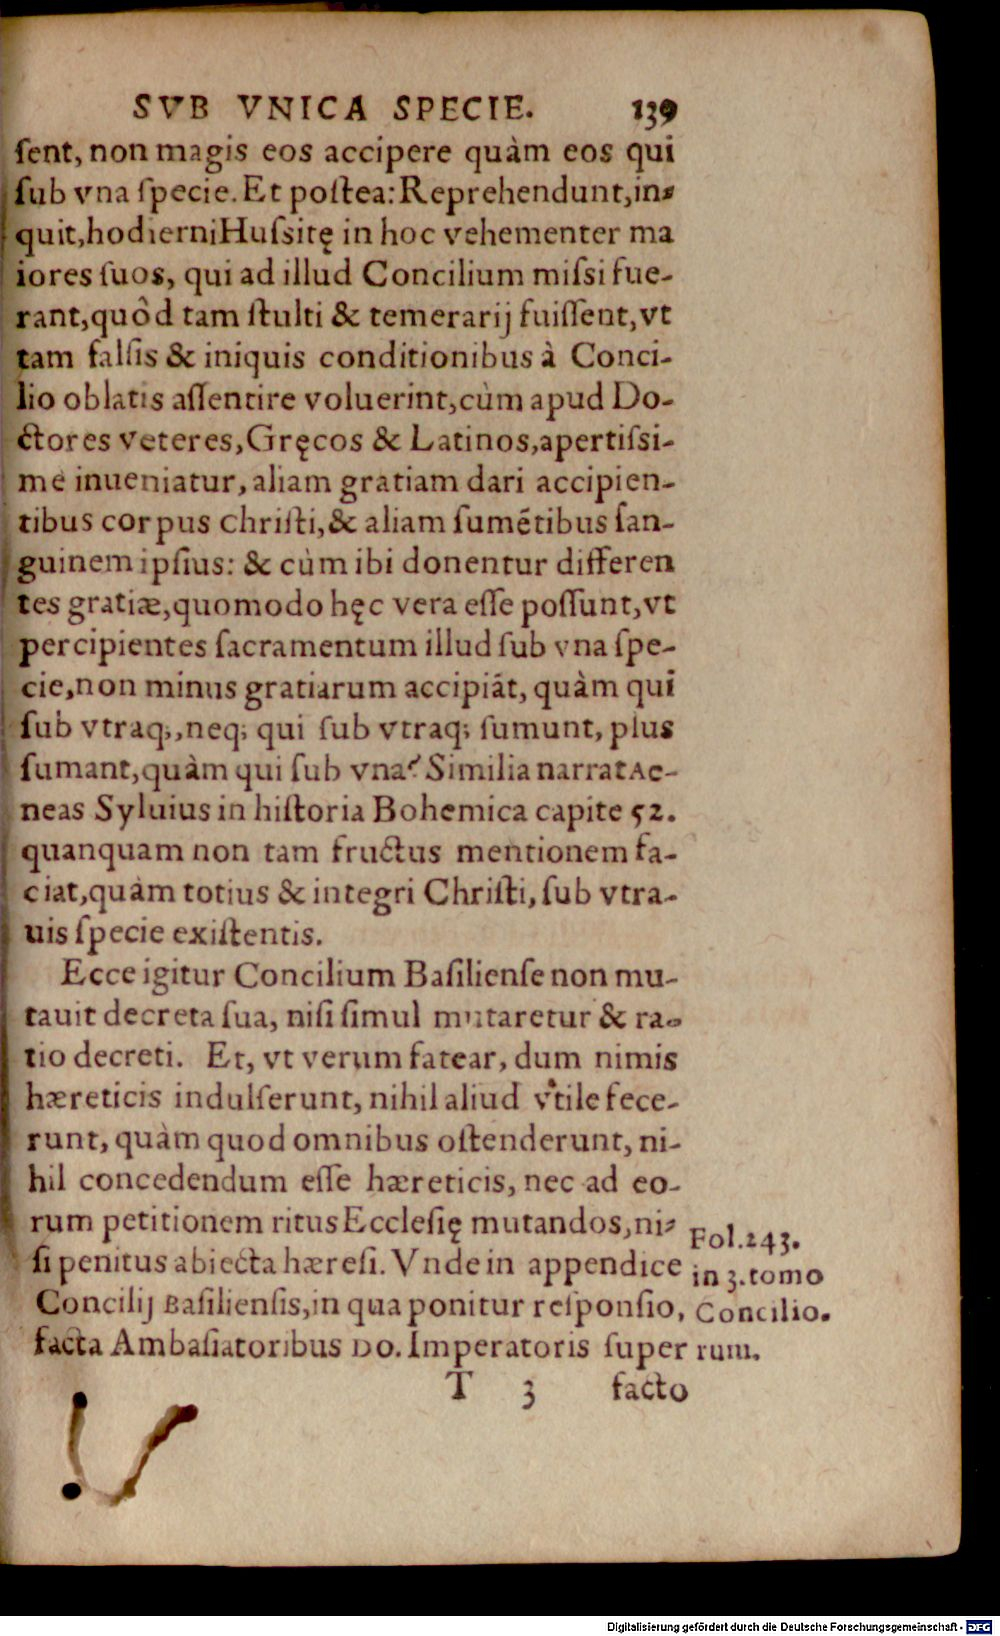 SVB VNICA SPECIE. 139
ſent, non magis eos accipere quàm eos qui
ſub vna ſpecie. Et poſtea: Reprehendunt, in-
quit, hodierni Huſsitę in hoc vehementer ma
iores ſuos, qui ad illud Concilium miſsi fue-
rant, quòd tam ſtulti & temerarij fuiſſent, vt
tam falſis & iniquis conditionibus à Conci-
lio oblatis aſſentire voluerint, cùm apud Do-
ctores veteres, Gręcos & Latinos, apertiſsi-
mè inueniatur, aliam gratiam dari accipien-
tibus corpus chriſti, & aliam ſumẽtibus ſan-
guinem ipſius: & cùm ibi donentur differen
tes gratiæ, quomodo hęc vera eſſe poſſunt, vt
percipientes ſacramentum illud ſub vna ſpe-
cie, non minus gratiarum accipiãt, quàm qui
ſub vtraq;, neq; qui ſub vtraq; ſumunt, plus
ſumant, quàm qui ſub vna? Similia narrat Ae-
neas Syluius in hiſtoria Bohemica capite 52.
quanquam non tam fructus mentionem fa-
ciat, quàm totius & integri Chriſti, ſub vtra-
uis ſpecie exiſtentis.
Ecce igitur Concilium Baſilienſe non mu-
tauit decreta ſua, niſi ſimul mutaretur & ra-
tio decreti. Et, vt verum fatear, dum nimis
hæreticis indulſerunt, nihil aliud vtile fece-
runt, quàm quod omnibus oſtenderunt, ni-
hil concedendum eſſe hæreticis, nec ad eo-
rum petitionem ritus Eccleſię mutandos, ni-
ſi penitus abiecta hæreſi. Vnde in appendice
Concilij Baſilienſis, in qua ponitur reſponſio,
facta Ambaſiatoribus Do. Imperatoris ſuper
Fol. 243.
in 3. tomo
Concilio.
rum.
T 3 facto
Digitalisierung gefördert durch die Deutsche Forschungsgemeinschaft - DFG